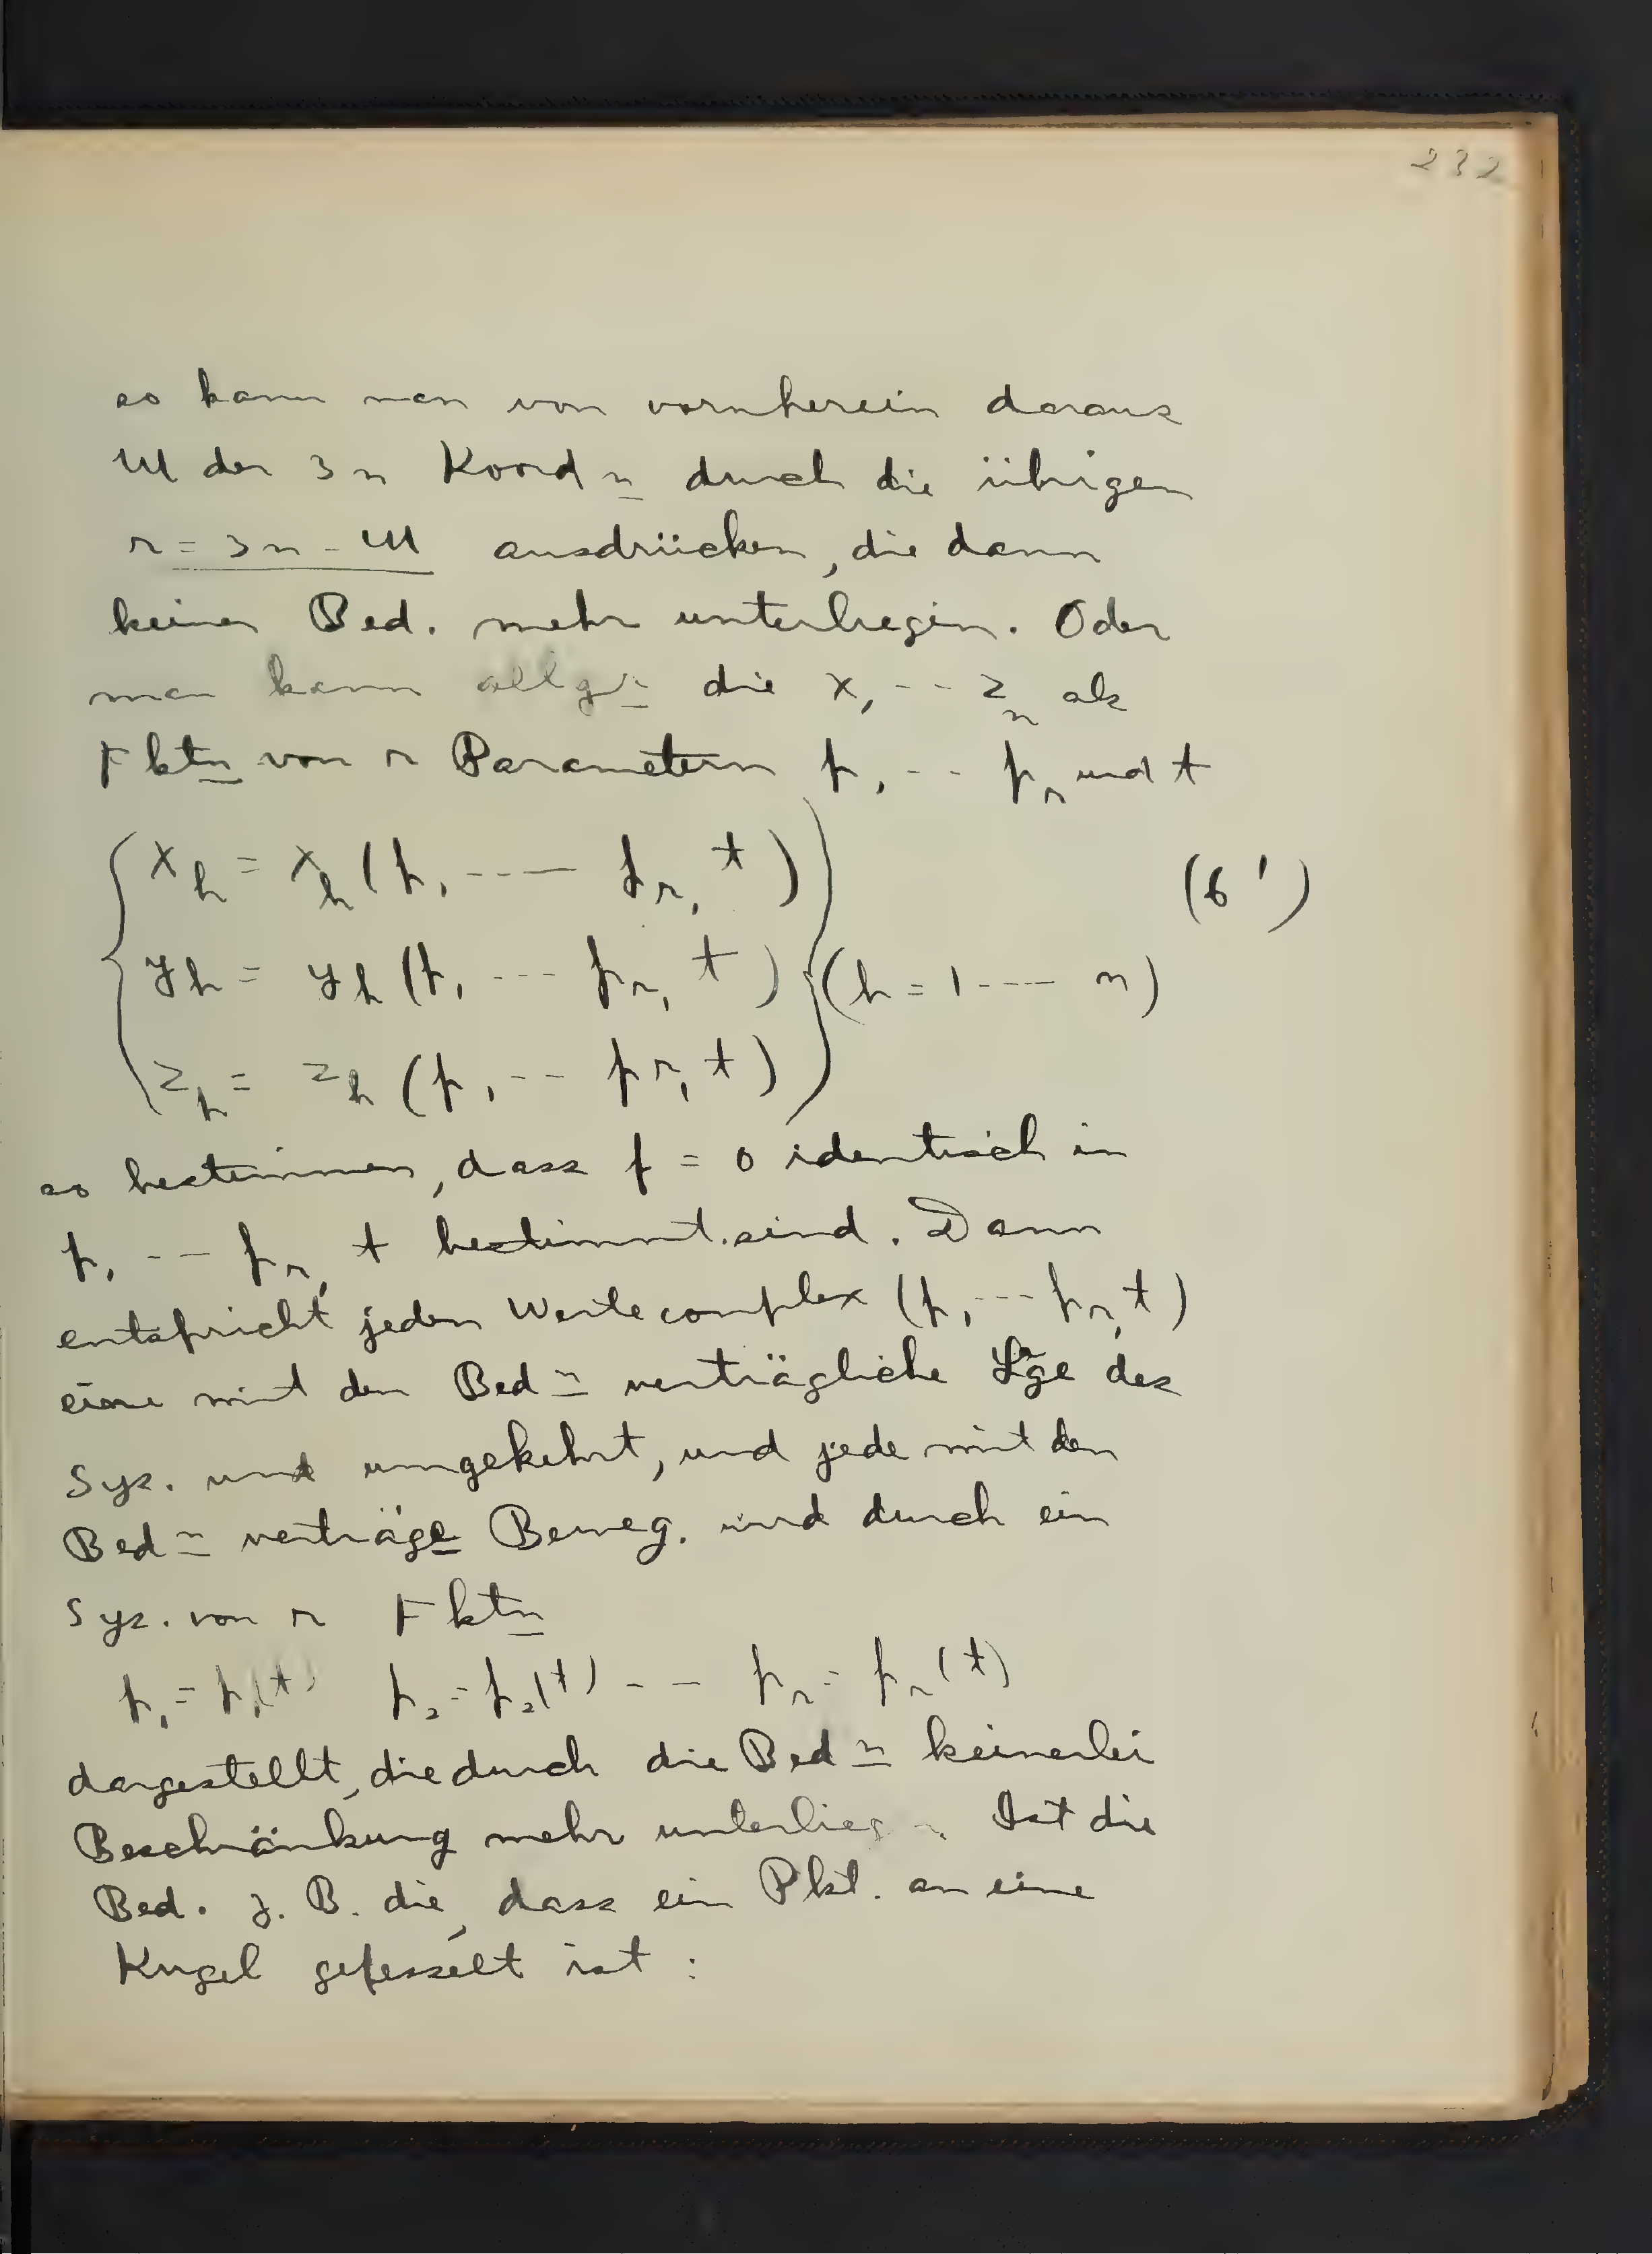 232
so kann man von vornherein daraus
m der 3n Koordn durch die übrigen
r = 3n - m ausdrücken, die dann
keiner Bed. mehr unterliegen. Oder
man kann allgn die x₁ -- zₙ als
Fktn von r Parametern p₁ -- pᵣ und t
xₕ = xₕ (p₁ ---- pᵣ, t) (6')
yₕ = yₕ (p₁ --- pᵣ, t) (h = 1 ---- n)
zₕ = zₕ (p₁ --- pᵣ, t)
so bestimmen, dass f = 0 identisch in
p₁ --- pᵣ, t bestimmt sind. Dann
entspricht jedem Wertecomplex (p₁ --- pᵣ, t)
eine mit den Bedn verträgliche Lge des
Sys. und umgekehrt, und jede mit den
Bedn verträge Beweg. wird durch ein
Sys. von r Fktn
p₁ = p₁(t) p₂ = p₂(t) -- pᵣ = pᵣ(t)
dargestellt, die durch die Bedn keinerlei
Beschränkung mehr unterliegen. Ist die
Bed. z. B. die, dass ein Pkt. an eine
Kugel gefesselt ist :